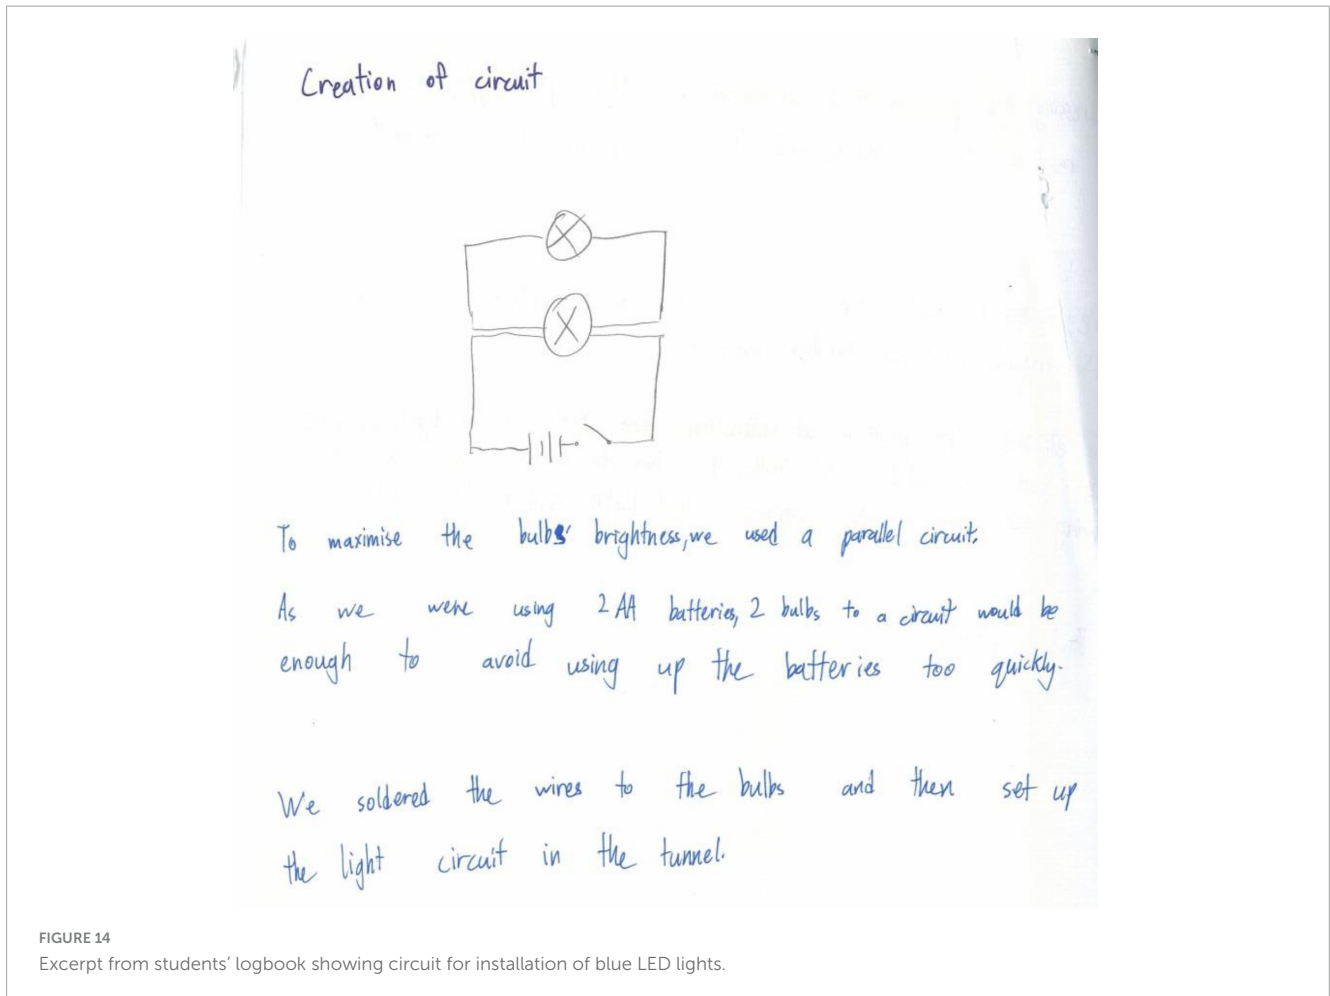 Creation of circuit
To maximise the bulbs' brightness, we used a parallel circuit.
As we were using 2 AA batteries, 2 bulbs to a circuit would be
enough to avoid using up the batteries too quickly.
We soldered the wires to the bulbs and then set up
the light circuit in the tunnel.
FIGURE 14
Excerpt from students' logbook showing circuit for installation of blue LED lights.